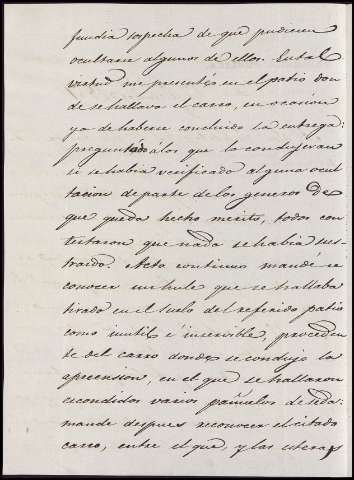 fundia sospecha de que pudieran
ocultarse algunos de ellos. En tal
virtud me presenté en el patio don
de se hallava el carro, en ocasion
ya de haberse concluido la entrega:
preguntado á los que la condujeran
si se habia verificado alguna ocul
tacion de parte de los generos de
que queda hecho merito, todos con
testaron que nada se habia sus
traido. Acto continuo mandé re
conocer un hule que se hallaba
tirado en el suelo del referido patio
como inutil é inservible, proceden
te del carro donde se condujo la
aprension, en el que se hallaron
escondidos varios pañuelos de seda:
mande despues reconocer el citado
carro, entre el que, y las esteras